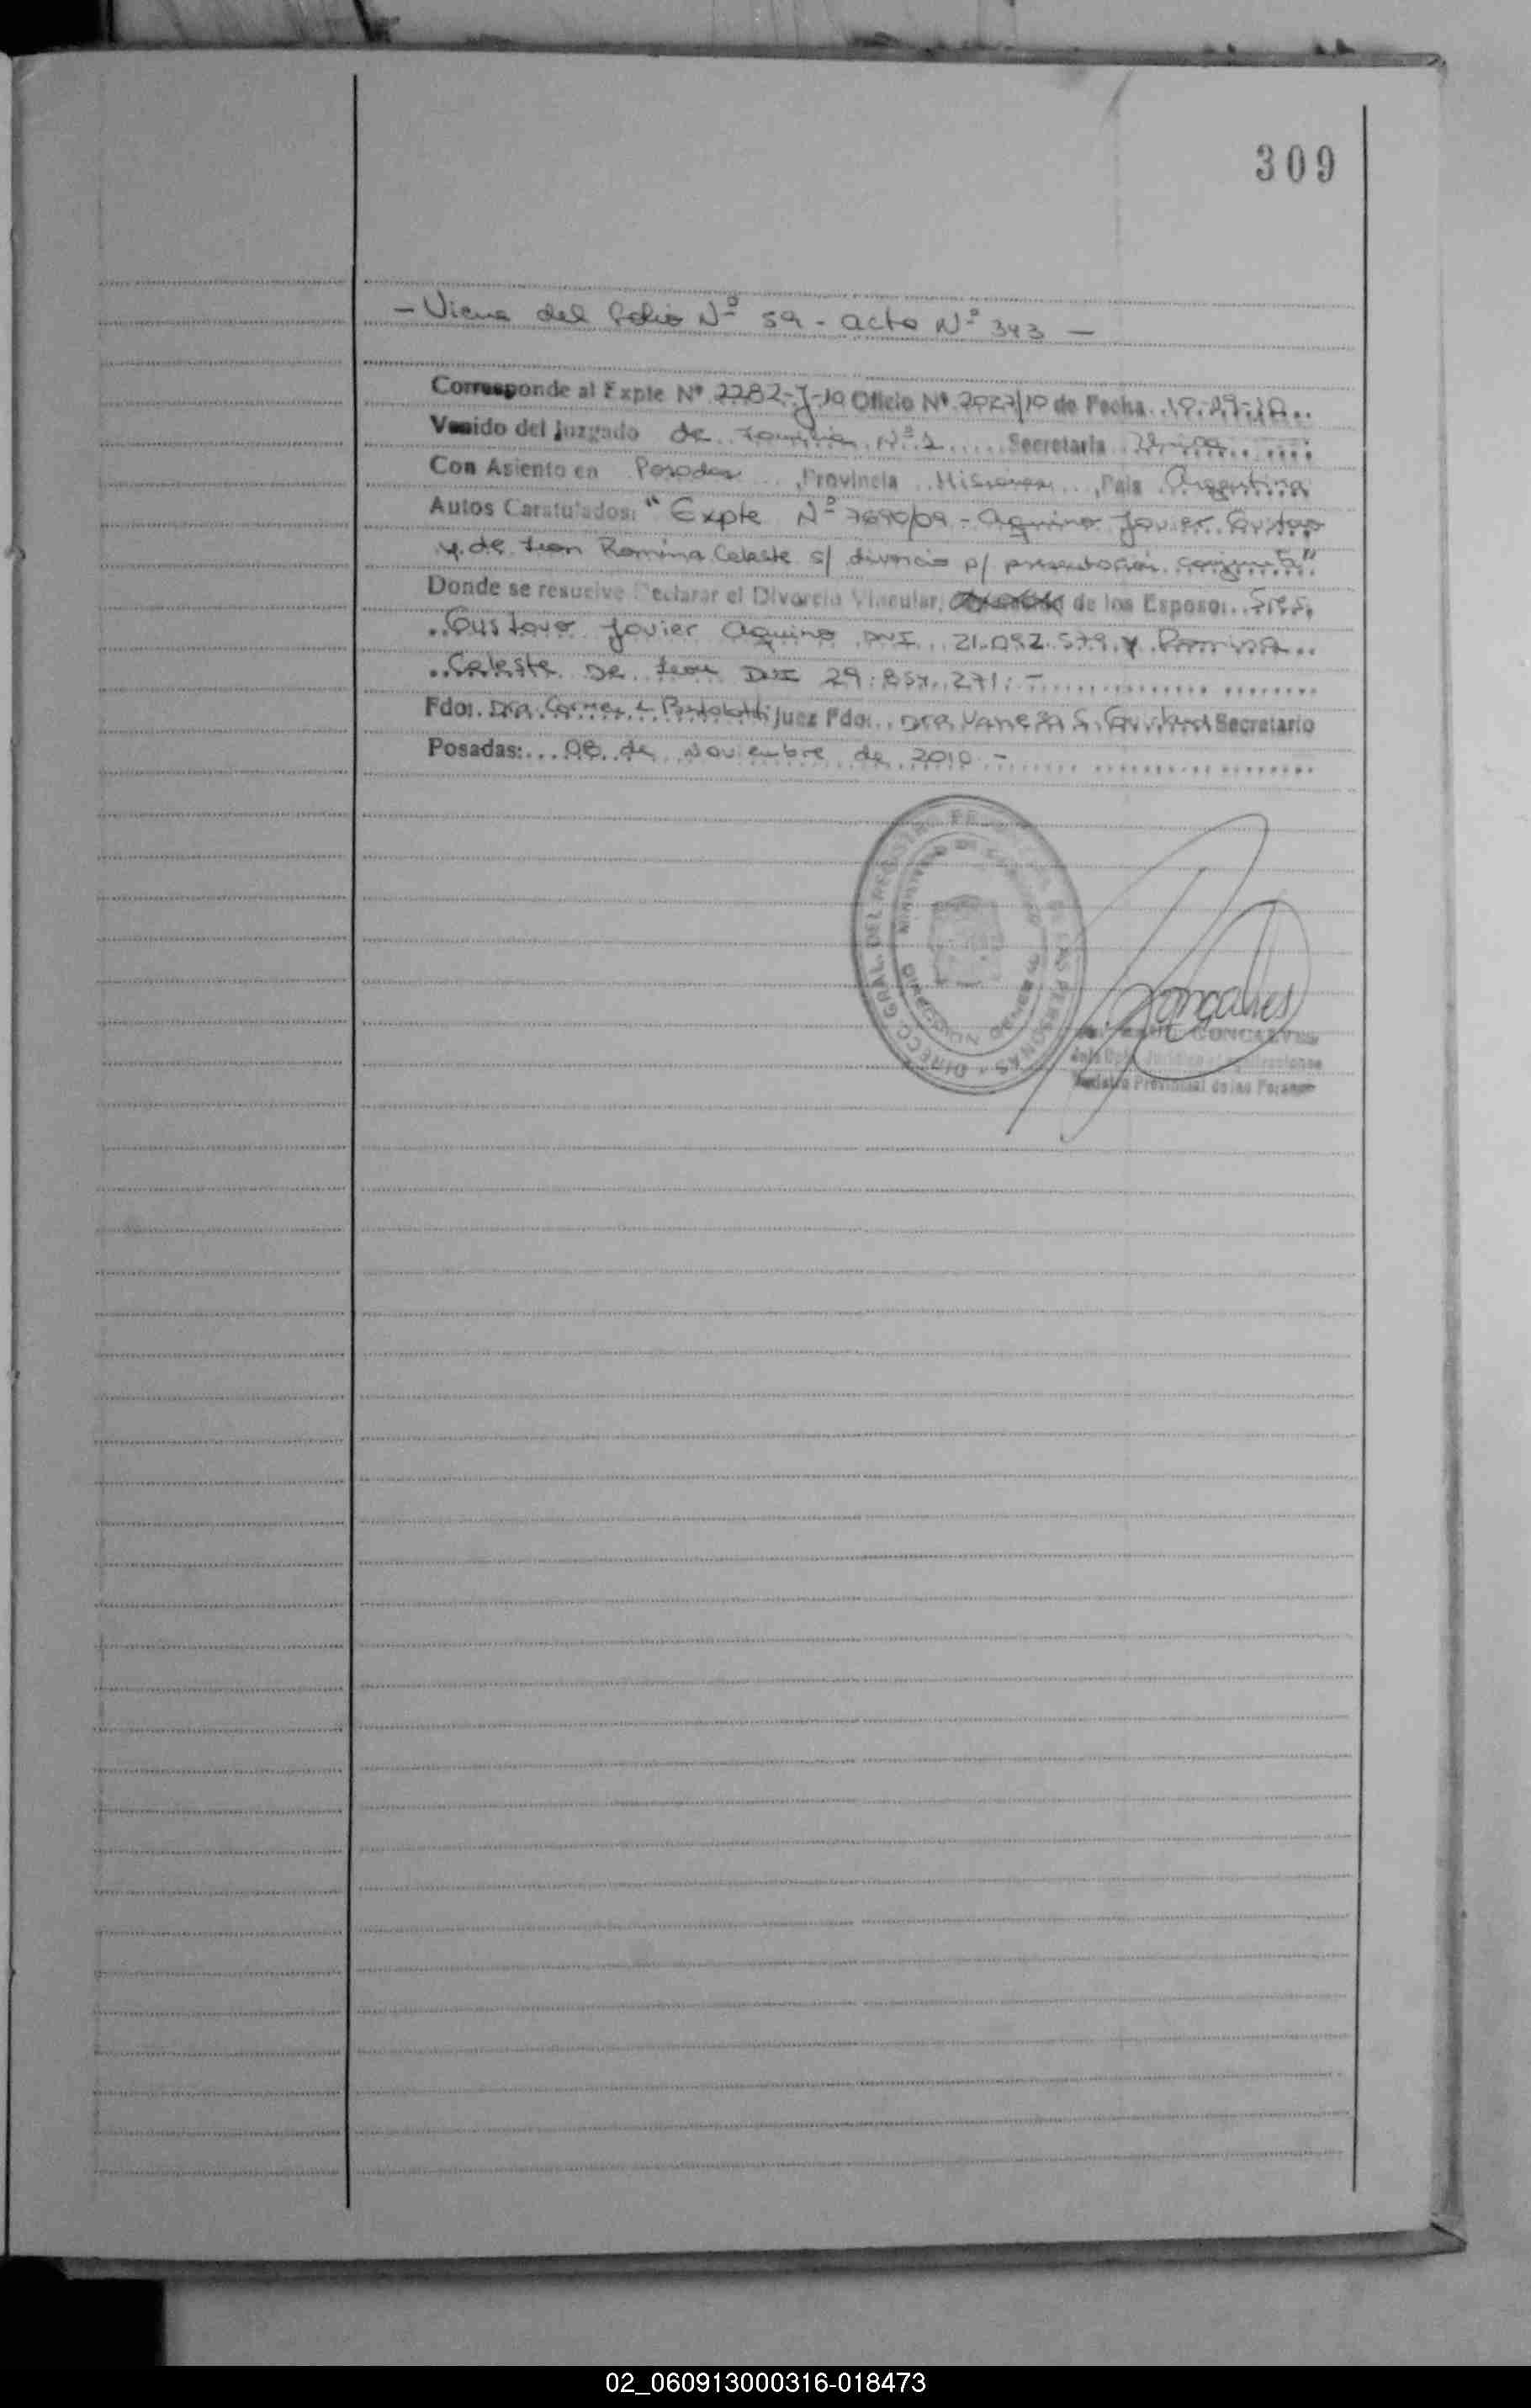 309
- Viene del folio Nº 59 - acta Nº 343 -
Corresponde al Expte Nº 2282-J-10 Oficio Nº 2027/10 de Fecha 10-09-10
Venido del Juzgado de Familia Nº 1 Secretaria Unica
Con Asiento en Posadas, Provincia Misiones, Pais Argentina
Autos Caratulados: "Expte Nº 7690/09 - Aquino Javier Gustavo
y de Leon Romina Celeste s/ divorcio p/ presentación conjunta"
Donde se resuelve Declarar el Divorcio Vincular, de los Esposos: Sres.
Gustavo Javier Aquino DNI 21.092.579 y Romina
Celeste De Leon DNI 29.857.271.-
Fdo: Dra. Carmen L Bertolotti Juez Fdo: Dra Vanesa S. Secretario
Posadas: 08 de Noviembre de 2010 -
DIRECC. GRAL. DEL REGISTRO DE LAS PERSONAS
MINISTERIO DE GOBIERNO
POSADAS MISIONES
Goncalves
GONCALVES
Jefe Dpto. Juridico
Registro Provincial de las Personas
02_060913000316-018473